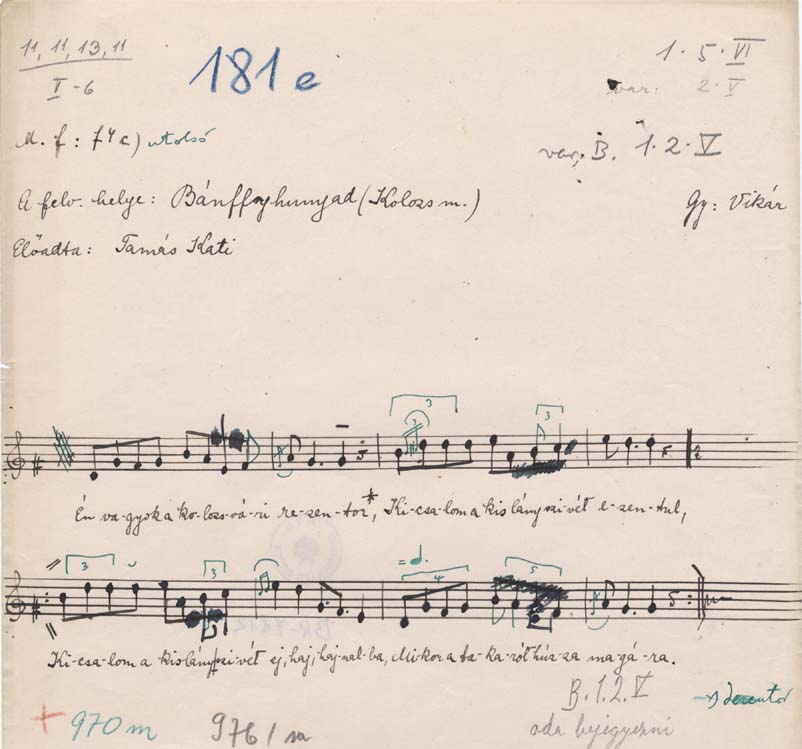 11, 11, 13, 11
I - 6
181 e
1 · 5 · VI
var: 2 · V
M. f: 74 c) utolsó
var. B. 1 · 2 · V
A felv. helye: Bánffyhunyad (Kolozs m.)
Gy: Vikár
Előadta: Tamás Kati
3 3 3
Én va-gyok a ko-lozs-vá-ri re-zen-tor*, Ki-csa-lom a kis lány szi-vét e-zen-tul,
3 3 = 4 5
Ki-csa-lom a kislány szi-vét ej, haj, haj-nal-ba, Mi-kor a ta-ka-rót húz-za ma-gá-ra.
B. 1. 2. V
oda bejegyezni
+ 970 m
976/m